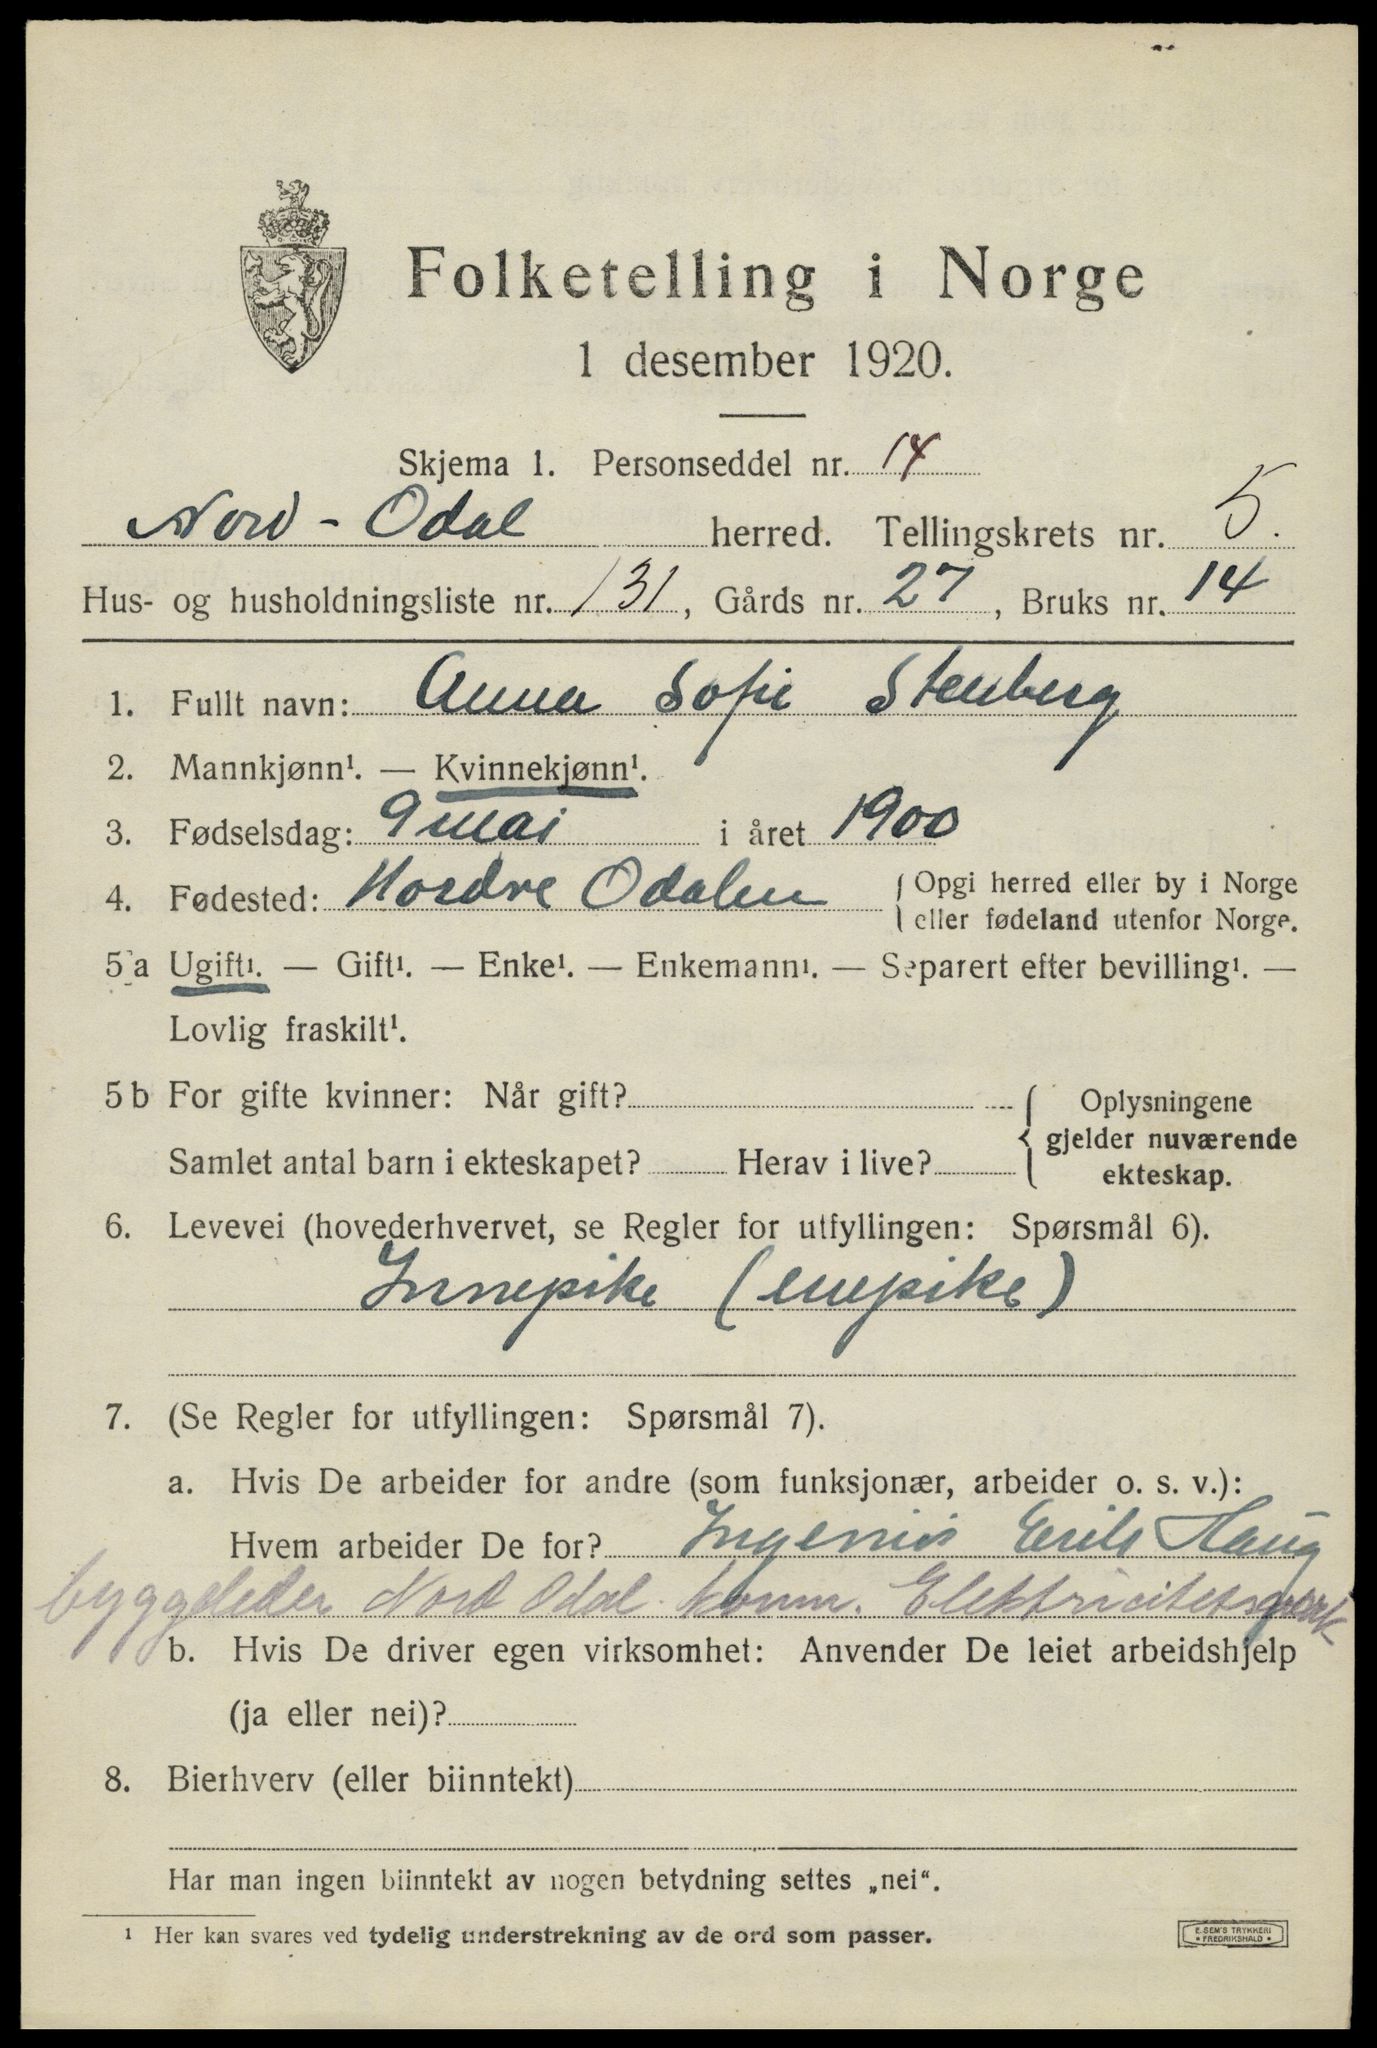 Folketelling i Norge
1 desember 1920.
Skjema 1. Personseddel nr. 14
Nord-Odal herred. Tellingskrets nr. 5.
Hus- og husholdningsliste nr. 131, Gårds nr. 27, Bruks nr. 14
1. Fullt navn: Anna Sofie Stenberg
2. Mannkjønn¹. — Kvinnekjønn¹.
3. Fødselsdag: 9 mai i året 1900
4. Fødested: Nordre Odalen { Opgi herred eller by i Norge
eller fødeland utenfor Norge.
5 a Ugift¹. — Gift¹. — Enke¹. — Enkemann¹. — Separert efter bevilling¹. —
Lovlig fraskilt¹.
5 b For gifte kvinner: Når gift? { Oplysningene
gjelder nuværende
Samlet antal barn i ekteskapet? Herav i live? ekteskap.
6. Levevei (hovederhvervet, se Regler for utfyllingen: Spørsmål 6).
Innepike (enepike)
7. (Se Regler for utfyllingen: Spørsmål 7).
a. Hvis De arbeider for andre (som funksjonær, arbeider o. s. v.):
Hvem arbeider De for? Ingeniør Erik Haug
byggeleder Nord Odal komm. Elektricitetsverk
b. Hvis De driver egen virksomhet: Anvender De leiet arbeidshjelp
(ja eller nei)?
8. Bierhverv (eller biinntekt)
Har man ingen biinntekt av nogen betydning settes „nei“.
¹ Her kan svares ved tydelig understrekning av de ord som passer.
E. SEM'S TRYKKERI
FREDRIKSHALD